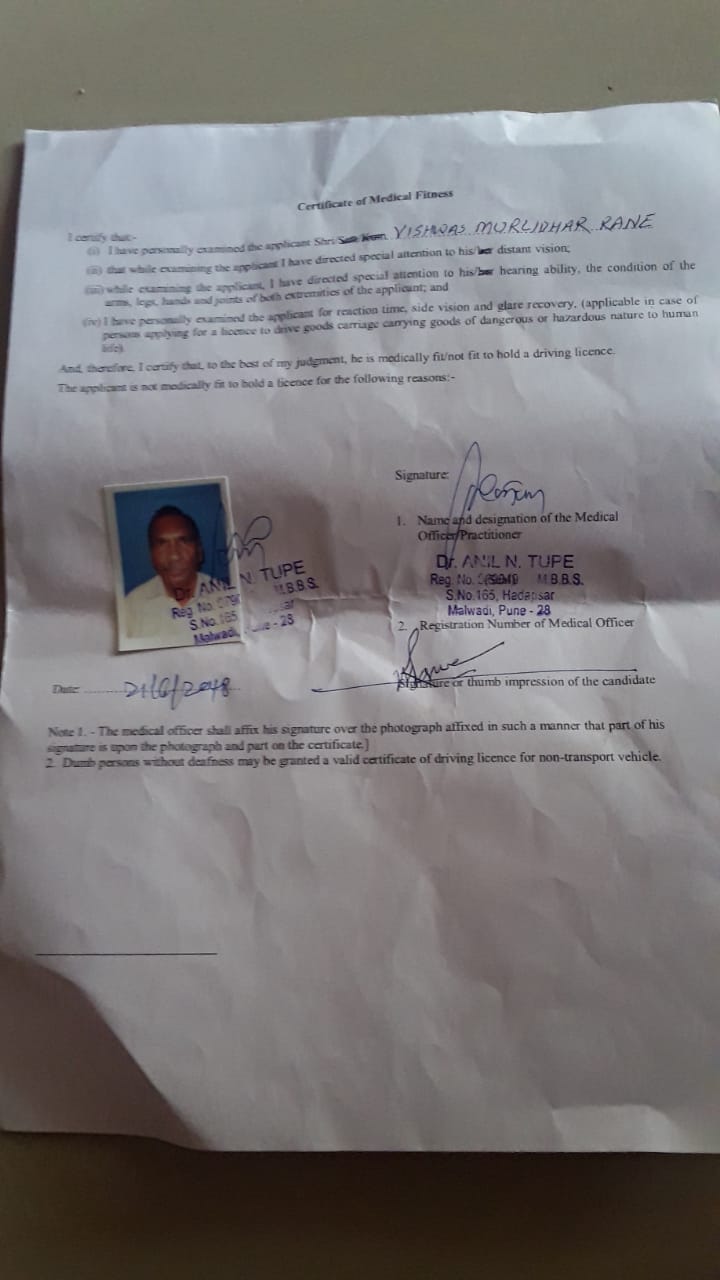 Certificate of Medical Fitness
I certify that:-
(i) I have personally examined the applicant Shri/ VISHWAS MURLIDHAR RANE
(ii) that while examining the applicant I have directed special attention to his/her distant vision;
(iii) while examining the applicant, I have directed special attention to his/her hearing ability, the condition of the
arms, legs, hands and joints of both extremities of the applicant; and
(iv) I have personally examined the applicant for reaction time, side vision and glare recovery, (applicable in case of
persons applying for a licence to drive goods carriage carrying goods of dangerous or hazardous nature to human
life).
And, therefore, I certify that, to the best of my judgment, he is medically fit/not fit to hold a driving licence.
The applicant is not medically fit to hold a licence for the following reasons:-
Signature:
1. Name and designation of the Medical
Officer/Practitioner
Dr. ANIL N. TUPE
Reg. No. M.B.B.S.
S.No.165, Hadapsar
Malwadi, Pune - 28
2. Registration Number of Medical Officer
Dr. ANIL N. TUPE
Reg No. M.B.B.S.
S.No.165
Malwadi, - 28
Date: 21/6/2018
Signature or thumb impression of the candidate
Note 1. - The medical officer shall affix his signature over the photograph affixed in such a manner that part of his
signature is upon the photograph and part on the certificate.]
2. Dumb persons without deafness may be granted a valid certificate of driving licence for non-transport vehicle.